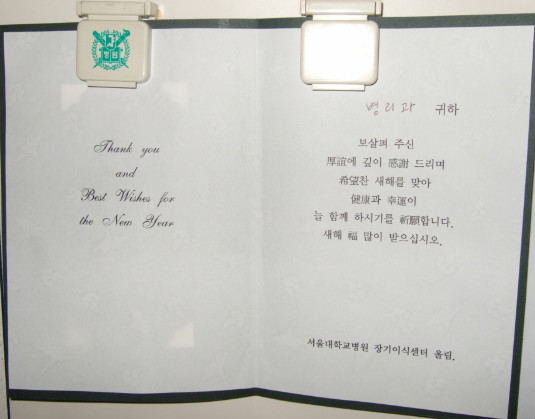 Thank you
and
Best Wishes for
the New Year
병리과 귀하
보살펴 주신
厚誼에 깊이 感謝 드리며
希望찬 새해를 맞아
健康과 幸運이
늘 함께 하시기를 祈願합니다.
새해 福 많이 받으십시오.
서울대학교병원 장기이식센터 올림.